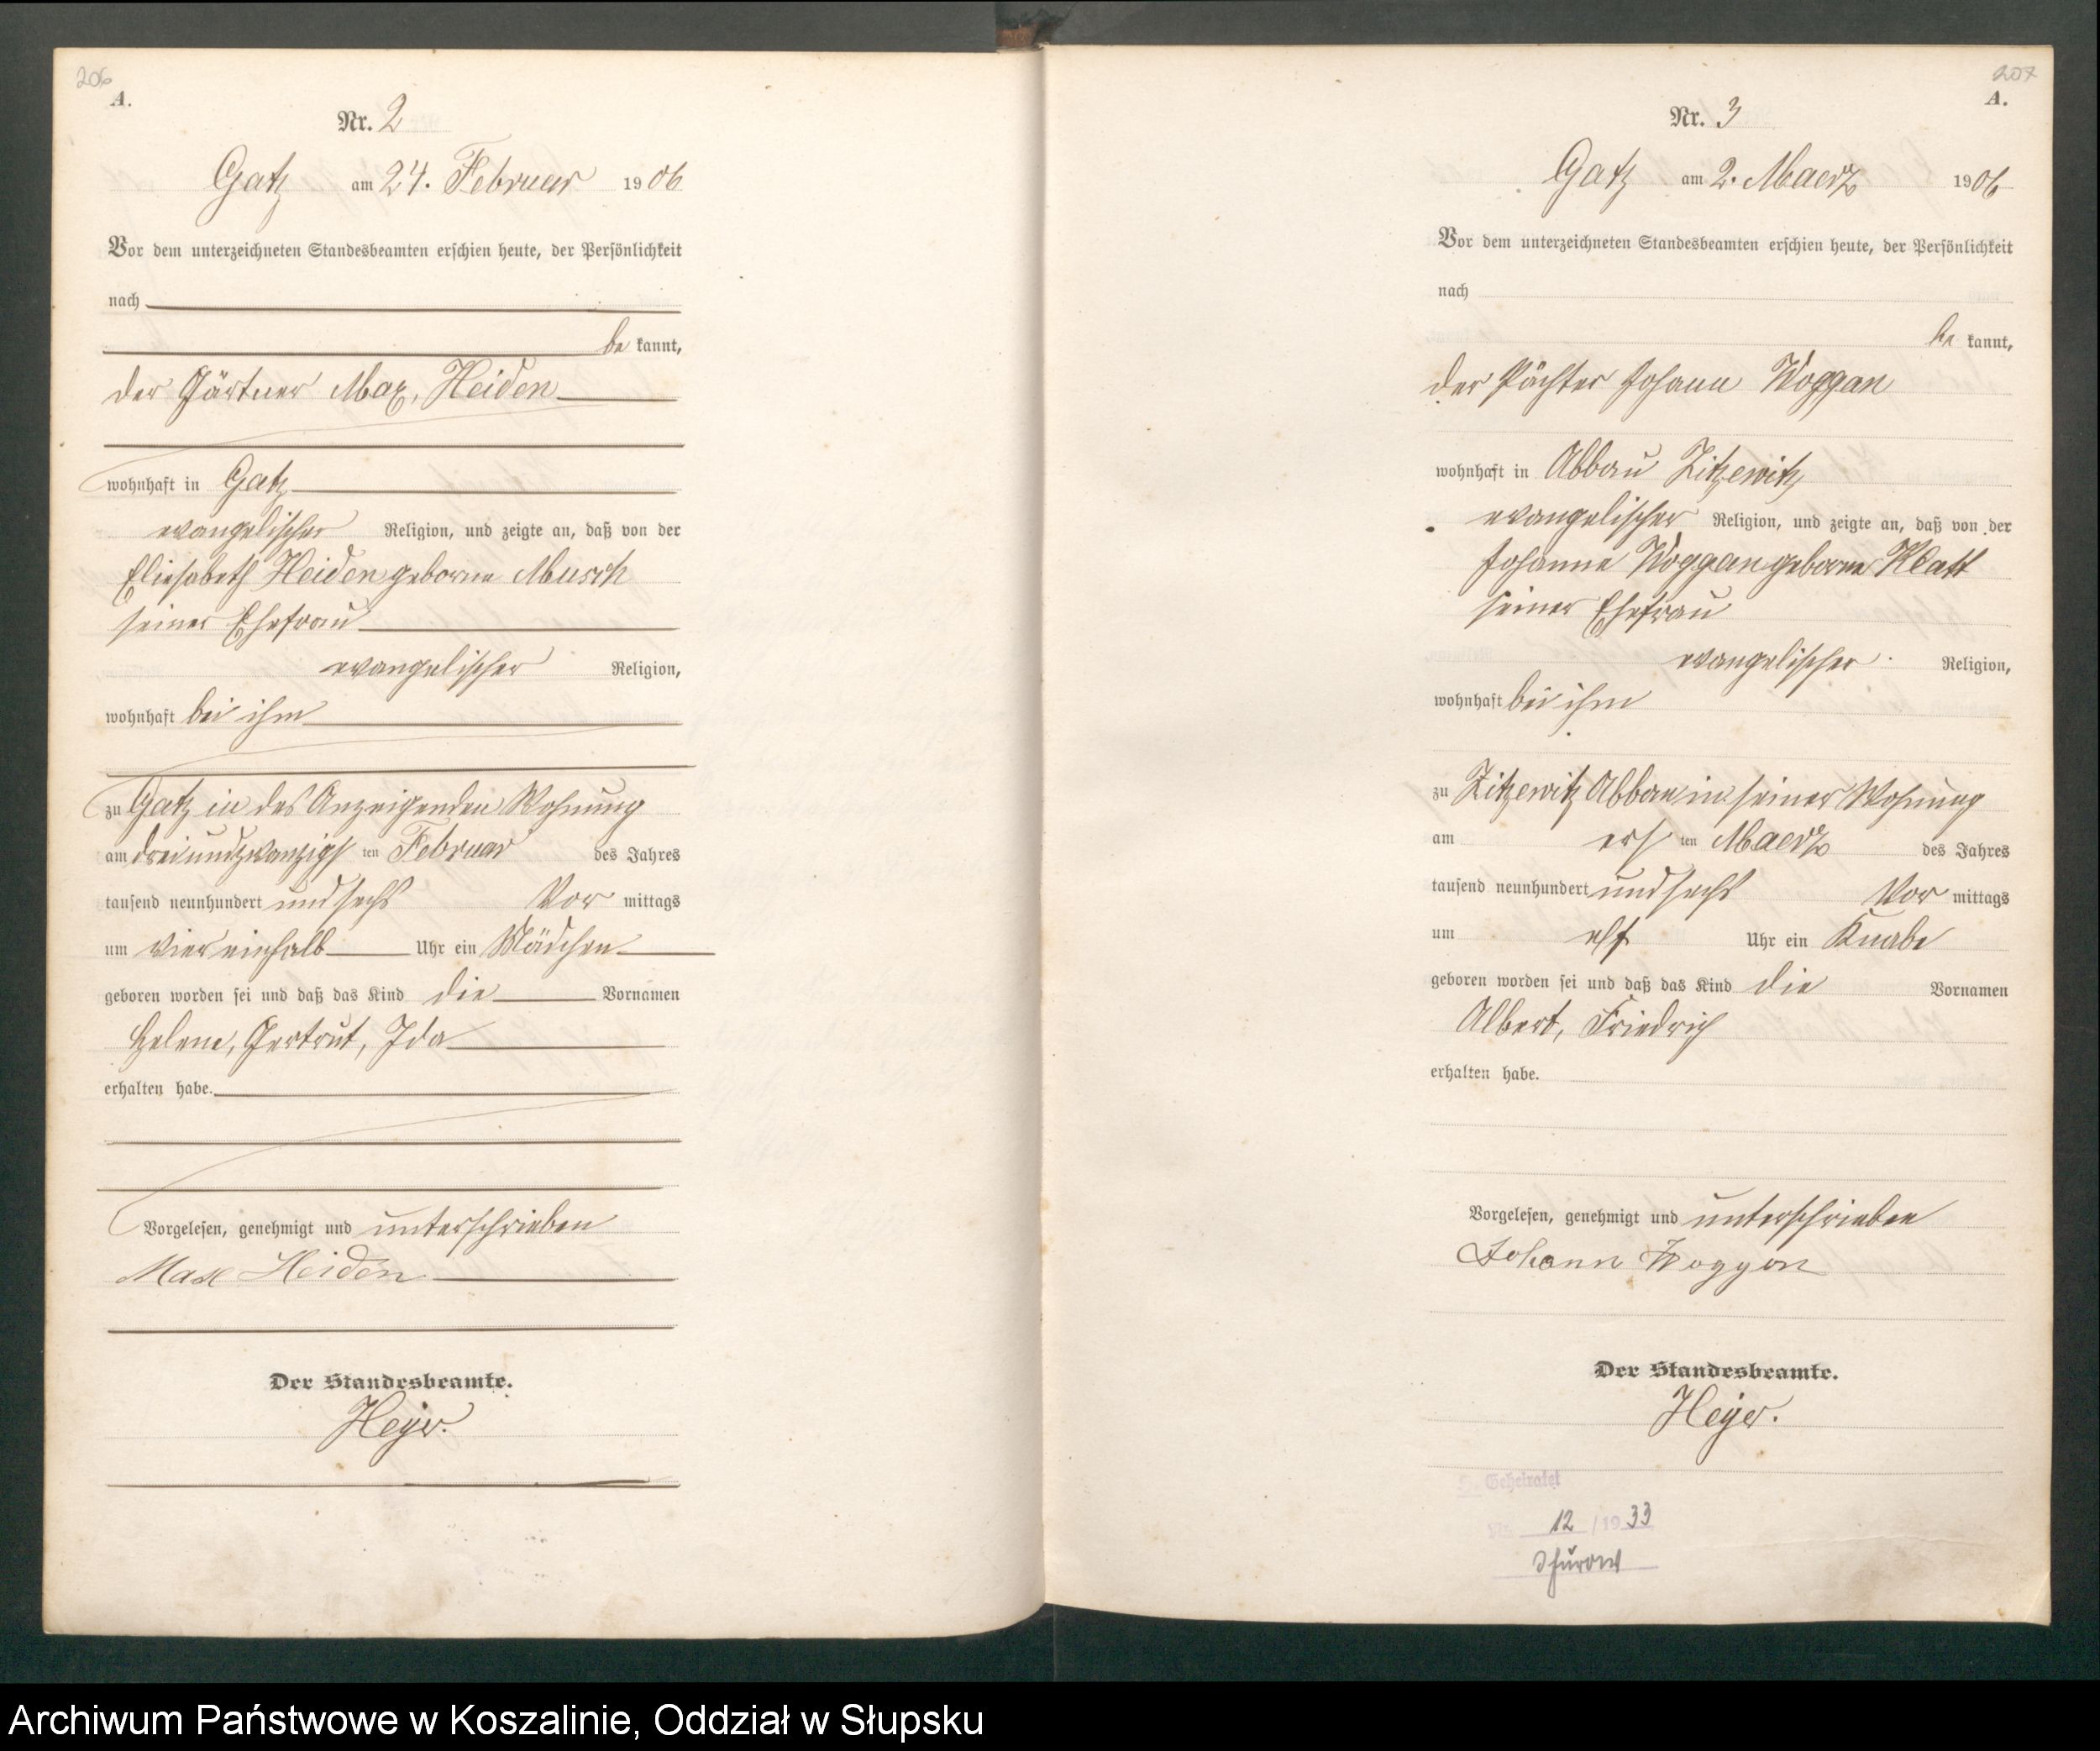 206
A.
Nr. 2
Gatz am 24. Februar 1906
Vor dem unterzeichneten Standesbeamten erschien heute, der Persönlichkeit
nach
be kannt,
der Gärtner Max, Heiden
wohnhaft in Gatz
evangelischer Religion, und zeigte an, daß von der
Eliesabeth Heiden geborne Musch
seiner Ehefrau
evangelischer Religion,
wohnhaft bei ihm
zu Gatz in des Anzeigenden Wohnung
am dreiundzwanzigs ten Februar des Jahres
tausend neunhundert und sechs Vor mittags
um viereinhalb Uhr ein Mädchen
geboren worden sei und daß das Kind die Vornamen
Helene, Gertrut, Ida
erhalten habe.
Vorgelesen, genehmigt und unterschrieben
Max Heiden
Der Standesbeamte.
Heyer.
207
A.
Nr. 3
Gatz am 2. Maerz 1906
Vor dem unterzeichneten Standesbeamten erschien heute, der Persönlichkeit
nach
be kannt,
der Pächter Johann Woggan
wohnhaft in Abbau Zitzewitz
evangelischer Religion, und zeigte an, daß von der
Johanne Woggan geborne Klatt
seiner Ehefrau
evangelischer Religion,
wohnhaft bei ihm
zu Zitzewitz Abbau in seiner Wohnung
am ers ten Maerz des Jahres
tausend neunhundert und sechs Vor mittags
um elf Uhr ein Knabe
geboren worden sei und daß das Kind die Vornamen
Albert, Friedrich
erhalten habe.
Vorgelesen, genehmigt und unterschrieben
Johann Woggon
Der Standesbeamte.
Heyer.
Geheiratet
Nr. 12 / 1933
Archiwum Państwowe w Koszalinie, Oddział w Słupsku